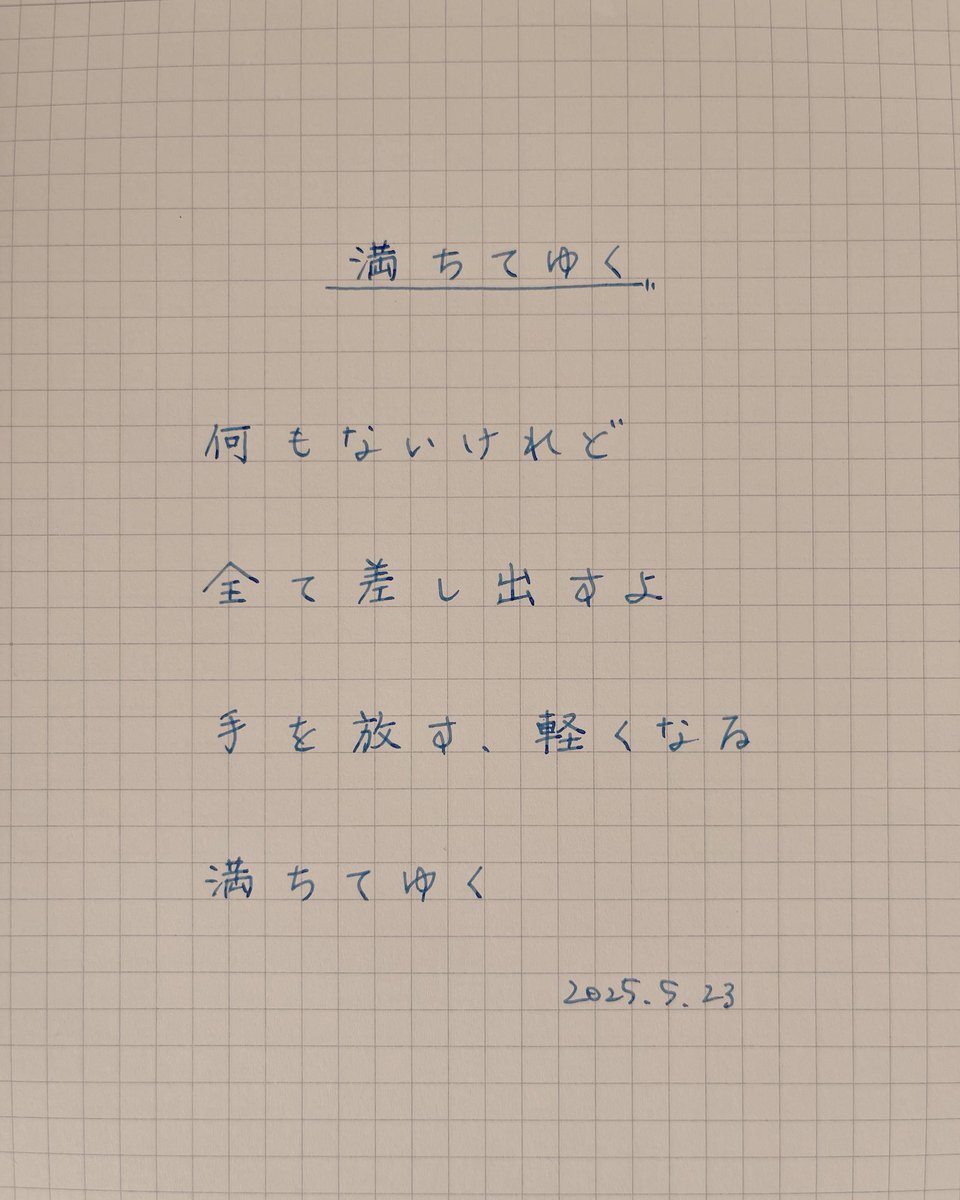 満ちてゆく
何もないけれど
全て差し出すよ
手を放す、軽くなる
満ちてゆく
2025.5.23